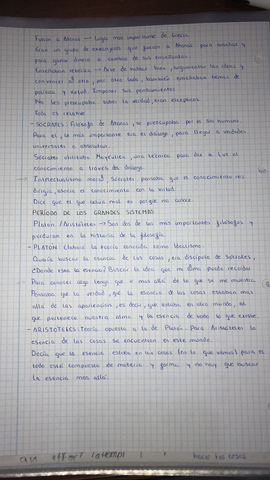 Fueron a Atenas → Lugar más importante de Grecia.
Eran un grupo de extranjeros que fueron a Atenas para enseñar y
para ganar dinero a cambio de sus enseñanzas.
Enseñaban retórica → Arte de hablar bien, argumentar las ideas y
convencer al otro, por otro lado, también enseñaban temas de
política y virtud. Imponer sus pensamientos.
No les preocupaba sobre la verdad, eran escépticos.
Todo es relativo.
- SÓCRATES: Filósofo de Atenas, se preocupaba por el ser humano.
Para él, lo más importante era el diálogo, para llegar a verdades
universales o absolutas.
Sócrates utilizaba Mayéutica, una técnica para dar a luz al
conocimiento a través del diálogo.
Intelectualismo moral: Sócrates pensaba que el conocimiento nos
dirigía, asocia el conocimiento con la virtud.
Dice que el que actúa mal es porque no conoce.
PERÍODO DE LOS GRANDES SISTEMAS
Platón / Aristóteles → Son de los más importantes filósofos y
perduran en la historia de la filosofía.
- PLATÓN: Elaboró la teoría conocida como Idealismo.
Quería buscar la esencia de las cosas, era discípulo de Sócrates,
¿Dónde está la esencia? Buscar la idea que me
Para conocer algo tengo que ir más allá de lo que se me muestra
Pensaba que la verdad, que la esencia de las cosas estaban más
allá de las apariencias, es decir, que estaban en otro mundo, al
que pertenece nuestra alma y la esencia de todo lo que existe.
- ARISTÓTELES: Teoría opuesta a la de Platón. Para Aristóteles la
esencia de las cosas se encuentran en este mundo.
Decía que la esencia estaba en las cosas (en lo que vemos) pues es
todo está compuesto de materia y forma y no hay que buscar
la esencia más allá.